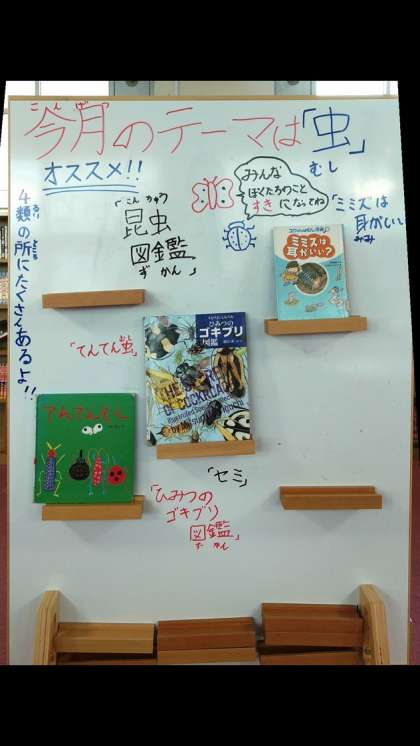 こんげつ
今月のテーマは「虫」
むし
オススメ!!
みんな
ぼくたちのこと
すきになってね
4類の所にたくさんあるよ!!
るい
ところ
「こんちゅう
昆虫
図鑑」
ずかん
「ミミズは
耳がいい」
みみ
ミミズは
耳がいい?
「てんてん虫」
むし
ひみつの
ゴキブリ
図鑑
THE
OF COCKROACH
てんてんむし
「セミ」
「ひみつの
ゴキブリ
図鑑」
ずかん